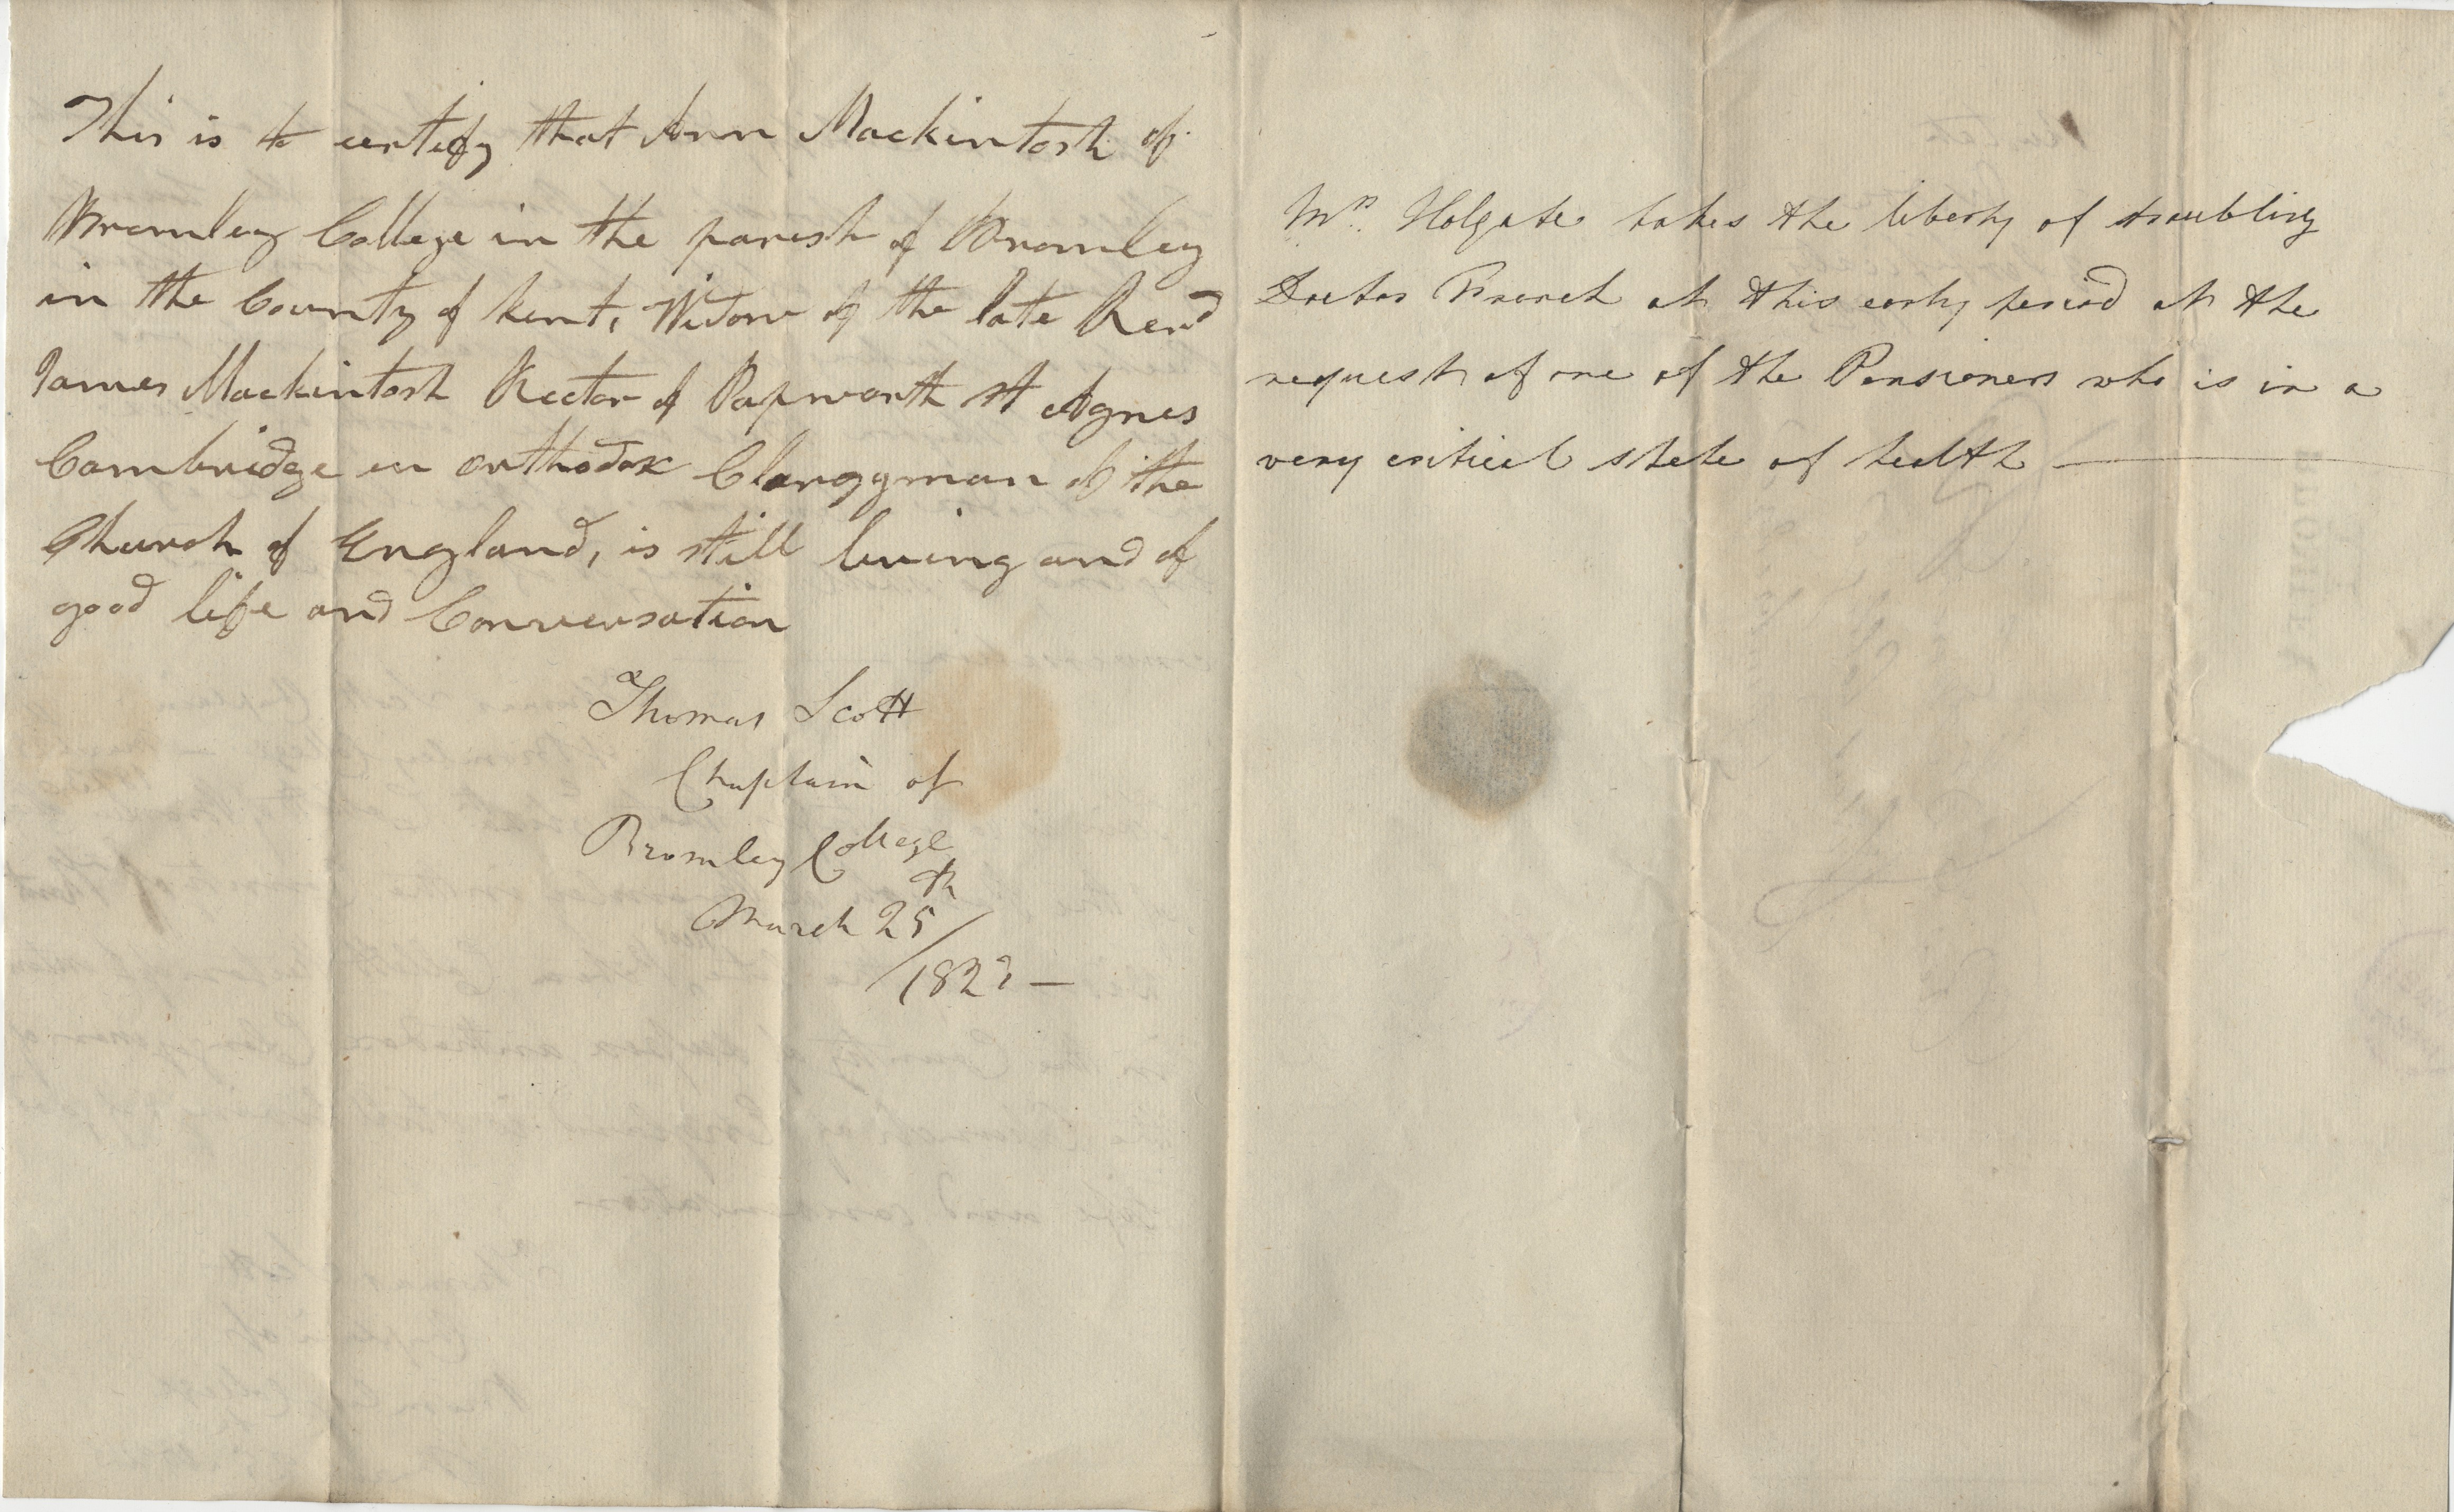 This is to certify that Ann Mackintosh of
Bromley College in the parish of Bromley
in the County of Kent, Widow of the late Revd
James Mackintosh Rector of Papworth St Agnes
Cambridge an orthodox Clergyman of the
Church of England, is still living and of
good life and Conversation
Thomas Scott
Chaplain of
Bromley College
March 25th
1822 —
Mrs. Holgate takes the liberty of troubling
Doctor at this early period at the
request of one of the Pensioners who is in a
very critical state of health —